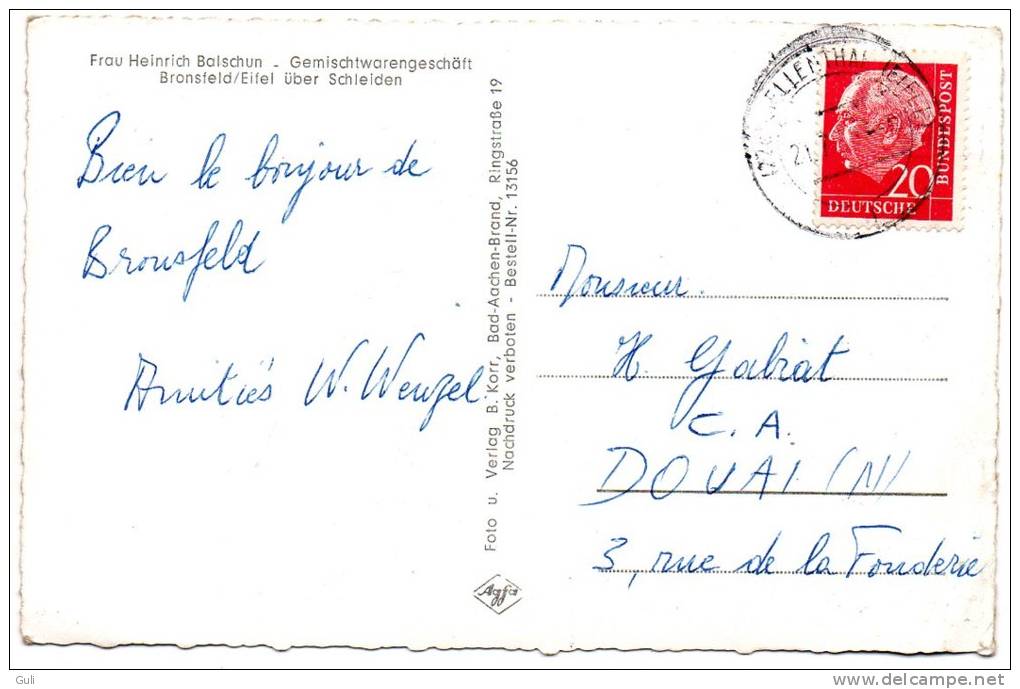 Frau Heinrich Balschun - Gemischtwarengeschäft
Bronsfeld/Eifel über Schleiden
Bien le bonjour de
Bronsfeld
Amitiés W. Wenzel.
Foto u. Verlag B. Korr, Bad-Aachen-Brand, Ringstraße 19
Nachdruck verboten - Bestell-Nr. 13156
Agfa
20
DEUTSCHE
BUNDESPOST
Monsieur.
H. Gabiat
C. A.
DOUAI (N)
3, rue de la Fonderie
Guli
www.delcampe.net